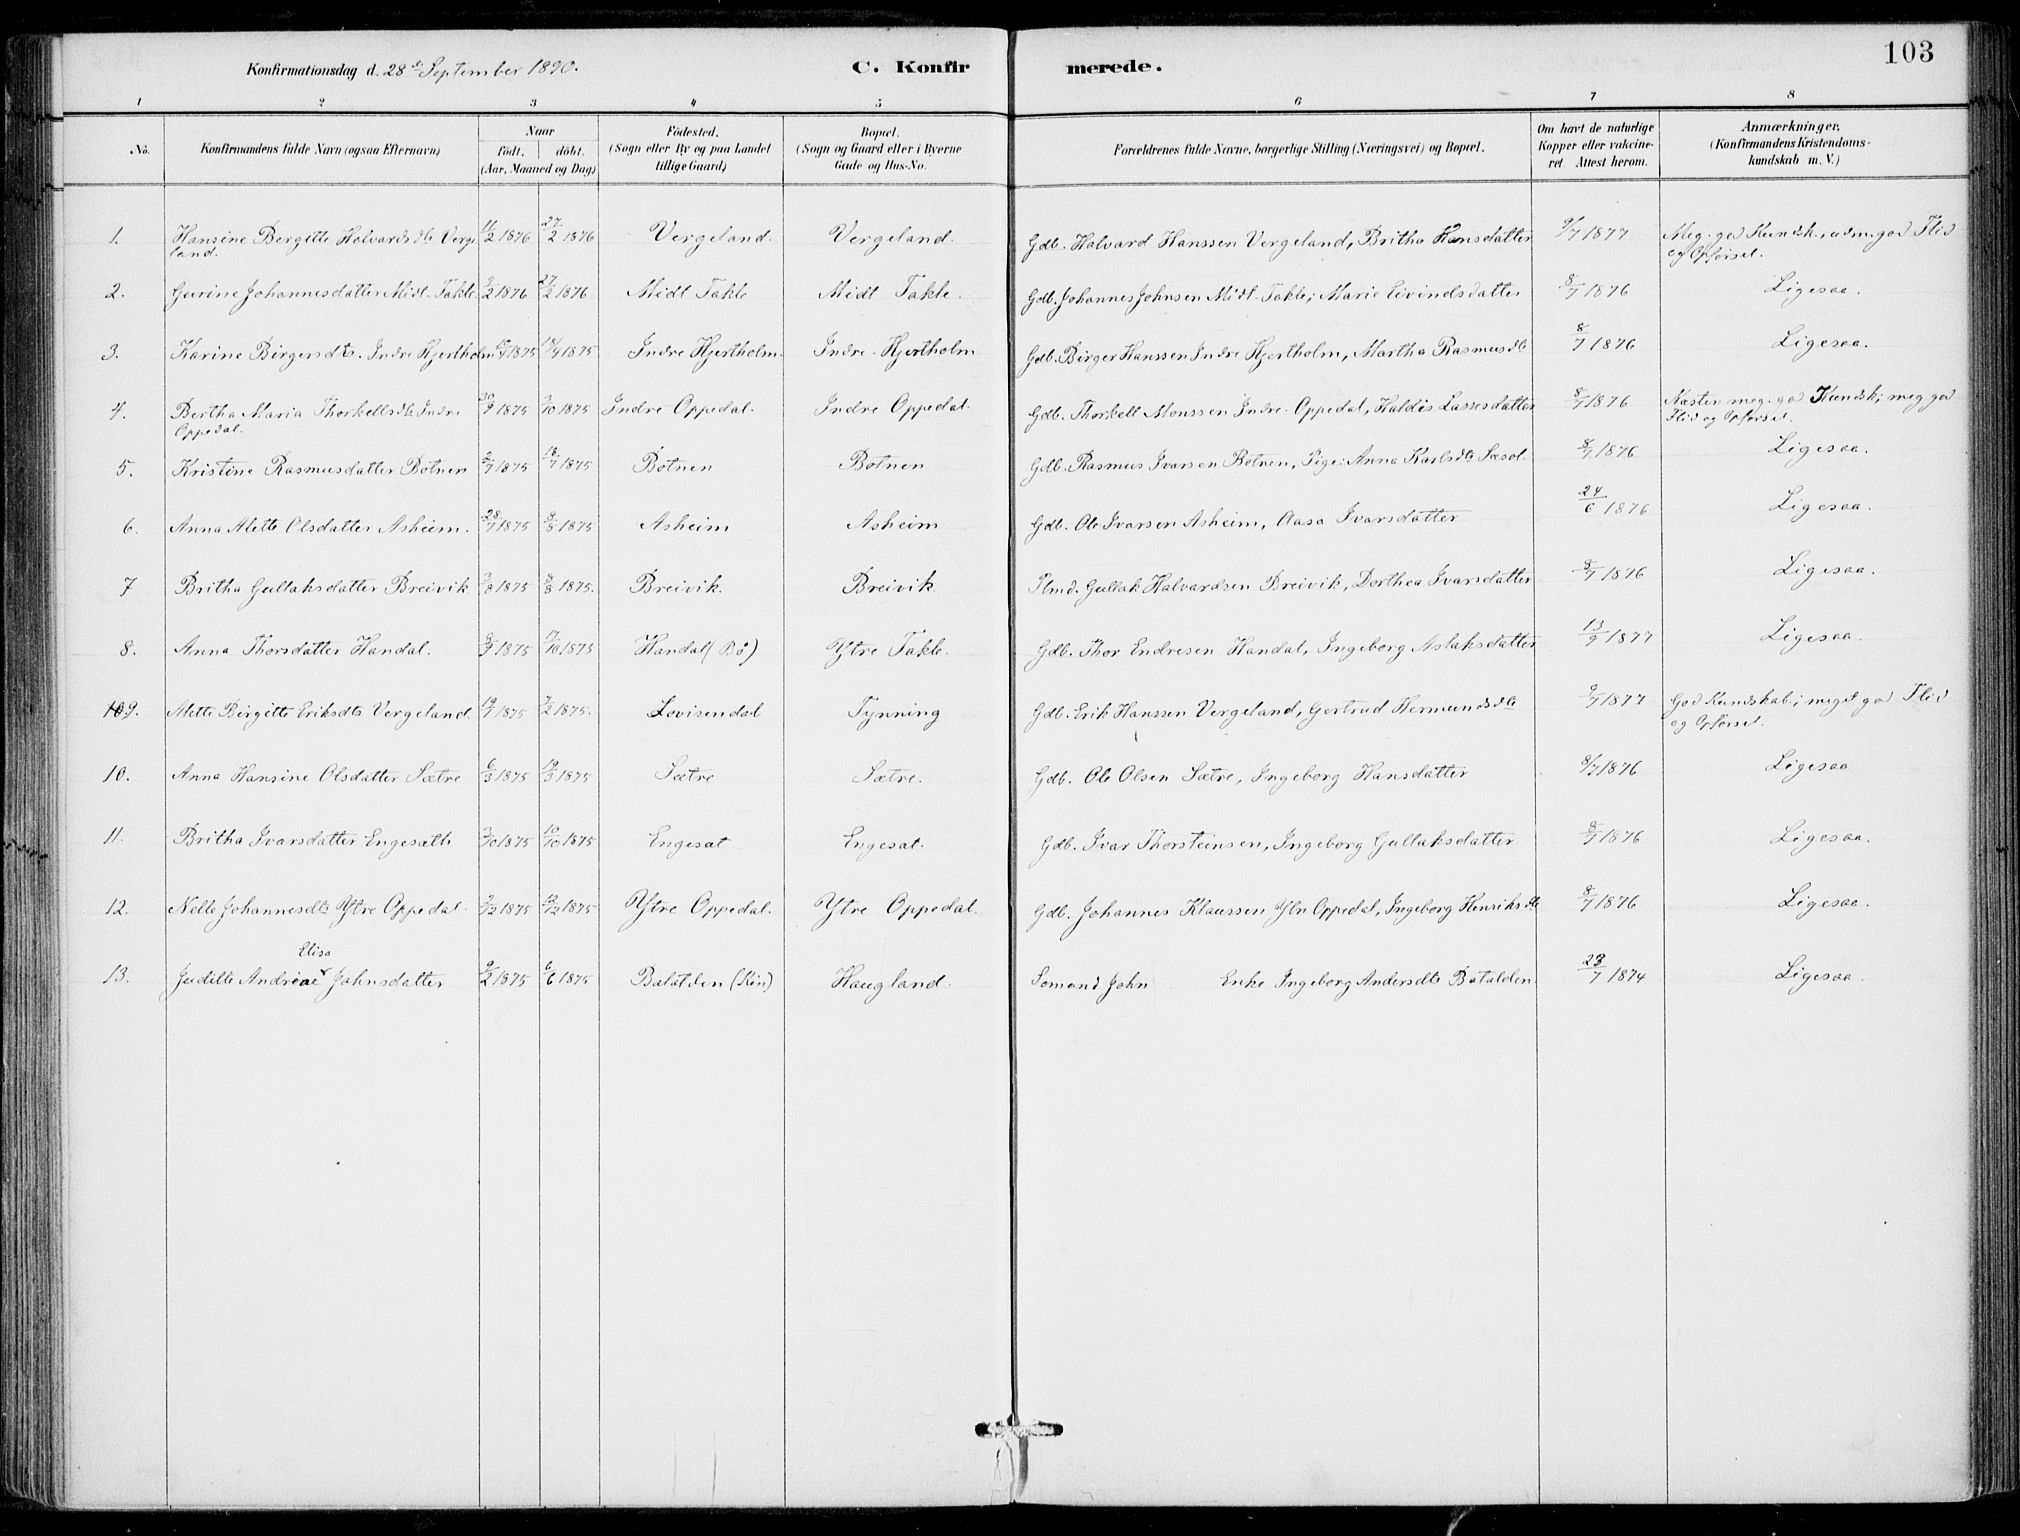 103
Konfirmationsdag d. 28de September 1890. C. Konfirmerede.
1 2 3 4 5 6 7 8
No. Konfirmandens fulde Navn (ogsaa Efternavn) Naar født, døbt. (Aar, Maaned og Dag) Fødested. (Sogn eller By og paa Landet tillige Gaard) Bopæl. (Sogn og Gaard eller i Byerne Gade og Hus-No. Forældrenes fulde Navne, borgerlige Stilling (Næringsvei) og Bopæl. Om havt de naturlige Kopper eller vakcineret. Attest herom. Anmærkninger. (Konfirmandens Kristendomskundskab m. V.)
1. Hansine Bergitte Halvardsdtr Vergeland. 11/2 1876 27/2 1876 Vergeland. Vergeland. Gdb. Halvard Hanssen Vergeland, Britha Hansdatter 9/7 1877 Meg. god Kundsk., udm. god Flid og Opførsel.
2. Gurine Johannesdatter Midt-Takle 27/2 1876 Midt Takle Midt Takle. Gdb. Johannes Johnsen Midt-Takle; Marie Eivindsdatter 8/7 1876 Ligesaa.
3. Karine Birgersdtr. Indre Hjertholm 1875 18/4 1875 Indre Hjertholm. Indre Hjertholm Gdb. Birger Hanssen Indre Hjertholm, Martha Rasmusdtr 8/7 1876 Ligesaa.
4. Bertha Maria Thorkellsdtr Indre Oppedal. 20/9 1875 3/10 1875 Indre Oppedal. Indre Oppedal. Gdb. Thorkell Monssen Indre Oppedal, Haldis Lassesdatter 8/7 1876 Næsten meg. god Kundsk; meg god Flid og Opførsel.
5. Kristine Rasmusdatter Botnen 2/7 1875 18/7 1875 Botnen Botnen Gdb. Rasmus Ivarsen Botnen, Pige: Anna Karlsdtr 8/7 1876 Ligesaa.
6. Anna Alette Olsdatter Asheim. 28/7 1875 8/8 1875 Asheim Asheim Gdb. Ole Ivarsen Asheim, Aasa Ivarsdatter 24/6 1876 Ligesaa.
7 Britha Gullaksdatter Breivik 3/8 1875 8/8 1875. Breivik. Breivik Plmd. Gullak Halvardsen Breivik, Dorthea Ivarsdatter 8/7 1876 Ligesaa.
8. Anna Thorsdatter Handal. 1875 17/10 1875 Handal (Bö) Ytre Takle. Gdb. Thor Endresen Handal, Ingeborg Aslaksdatter 13/9 1877 Ligesaa.
9. Mette Birgitte Eriksdtr Vergeland. 1875 7/2 1875. Lovisendal Tynning Gdb. Erik Hanssen Vergeland, Gertrud Hermundsdtr 9/7 1877 God Kundskab; meget god Flid og Opførsel.
10. Anna Hansine Olsdatter Sætre 6/3 1875 19/3 1875 Sætre Sætre. Gdb. Ole Olsen Sætre, Ingeborg Hansdatter 8/7 1876 Ligesaa
11. Britha Ivarsdatter Engesæth 3/10 1875 10/10 1875 Engesæt Engesæt. Gdb. Ivar Thorsteinsen, Ingeborg Gullaksdatter 8/7 1876 Ligesaa.
12. Nelle Johannesdtr Ytre Oppedal. 7/12 1875 12/12 1875 Ytre Oppedal. Ytre Oppedal. Gdb. Johannes Klaussen Ytre Oppedal, Ingeborg Henriksdtr 8/7 1876 Ligesaa.
Elisa
13. Juditte Andreae Johnsdatter 9/2 1875 6/6 1875 Batalden (Kin) Haugland. Sömand John Enke Ingeborg Andersdtr Batalden. 23/7 1874 Ligesaa.